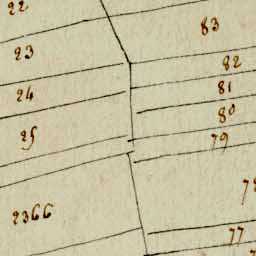 22
23
24
25
2366
83
82
81
80
79
77